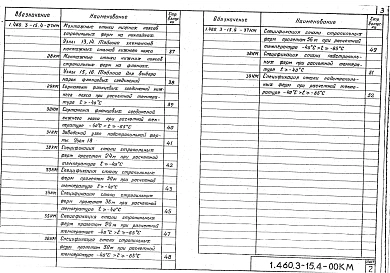 Обозначение Наименование Стр.
1.460.3-15.4-27КМ Монтажные стыки нижних поясов
стропильных ферм на накладках.
Узлы 13, 14. Таблица элементов
монтажных стыков нижних поясов 37
28КМ Монтажные стыки нижних поясов
стропильных ферм на фланцах.
Узлы 15, 16. Таблица для выбора
марки фланцевых соединений 38
29КМ Сортамент фланцевых соединений ниж-
него пояса при расчетной темпера-
туре t ≥ -40°С 39
30КМ Сортамент фланцевых соединений
нижнего пояса при расчетной тем-
пературе -40°С > t ≥ -65°С 40
Узел 18 41
Спецификация стали стропильных
ферм пролетом 24м при расчетной
температуре t ≥ -40°С 42
Спецификация стали стропильных
ферм пролетом 30м при расчетной
температуре t ≥ -40°С 43
Спецификация стали стропильных
ферм пролетом 36м при расчетной
температуре t ≥ -40°С 45
Спецификация стали стропильных
ферм пролетом 24м при расчетной
температуре -40°С > t ≥ -65°С 47
Спецификация стали стропильных
ферм пролетом 30м при расчетной
температуре -40°С > t ≥ -65°С 48
Обозначение Наименование Стр.
1.460.3-15.4-37КМ Спецификация стали стропильных
ферм пролетом 36м при расчетной
температуре -40°С > t ≥ -65°С 49
38КМ Спецификация стали подстропиль-
ных ферм при расчетной темпера-
туре t ≥ -40°С 51
Спецификация стали подстропильных
ферм при расчетной температуре
-40°С > t ≥ -65°С 52
3
1.460.3-15.4-00КМ
2